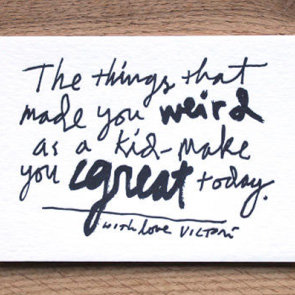 The things that
made you weird
as a kid-make
you great today.
with love Victori